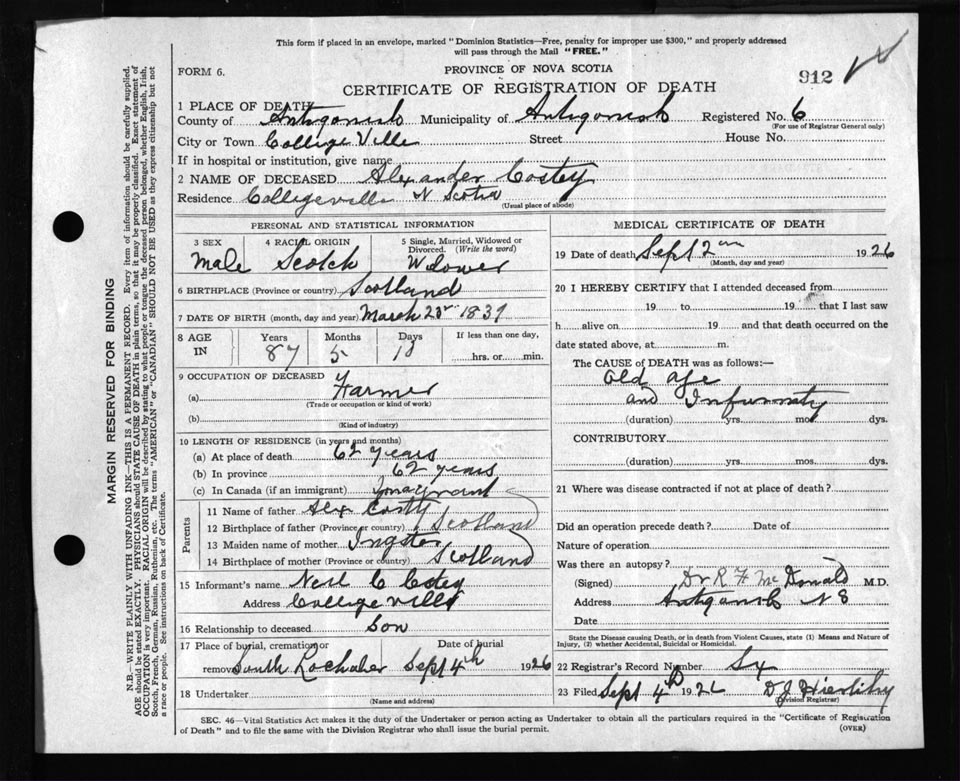 This form if placed in an envelope, marked "Dominion Statistics—Free, penalty for improper use $300," and properly addressed
will pass through the Mail "FREE."
FORM 6.
PROVINCE OF NOVA SCOTIA
912
CERTIFICATE OF REGISTRATION OF DEATH
1 PLACE OF DEATH
County of Antigonish Municipality of Antigonish Registered No. 6
(For use of Registrar General only)
City or Town College Ville Street House No.
If in hospital or institution, give name
2 NAME OF DECEASED Alexander Costey
Residence Collegeville N Scotia
(Usual place of abode)
PERSONAL AND STATISTICAL INFORMATION
3 SEX 4 RACIAL ORIGIN 5 Single, Married, Widowed or
Divorced. (Write the word)
Male Scotch Widower
6 BIRTHPLACE (Province or country) Scotland
7 DATE OF BIRTH (month, day and year) March 1839
8 AGE Years Months Days If less than one day,
IN 87 5 hrs. or min.
9 OCCUPATION OF DECEASED
(a) Farmer
(Trade or occupation or kind of work)
(b)
(Kind of industry)
10 LENGTH OF RESIDENCE (in years and months)
(a) At place of death 62 years
(b) In province 62 years
(c) In Canada (if an immigrant)
Parents
11 Name of father Alex Costy
12 Birthplace of father (Province or country) Scotland
13 Maiden name of mother
14 Birthplace of mother (Province or country) Scotland
15 Informant's name Neil C Costey
Address College ville
16 Relationship to deceased Son
17 Place of burial, cremation or Date of burial
removal South Lochaber Sept 4th 1926
18 Undertaker
(Name and address)
MEDICAL CERTIFICATE OF DEATH
19 Date of death Sept 2 1926
(Month, day and year)
20 I HEREBY CERTIFY that I attended deceased from
19 to 19 that I last saw
h alive on 19 and that death occurred on the
date stated above, at m.
The CAUSE of DEATH was as follows:—
Old age
and Infirmity
(duration) yrs. mos. dys.
CONTRIBUTORY
(duration) yrs. mos. dys.
21 Where was disease contracted if not at place of death?
Did an operation precede death? Date of
Nature of operation
Was there an autopsy?
(Signed) Dr R F McDonald M.D.
Address Antigonish N S
Date
State the Disease causing Death, or in death from Violent Causes, state (1) Means and Nature of
Injury, (2) whether Accidental, Suicidal or Homicidal.
22 Registrar's Record Number Six
23 Filed Sept 4th 1926
(Division Registrar)
SEC. 46—Vital Statistics Act makes it the duty of the Undertaker or person acting as Undertaker to obtain all the particulars required in the "Certificate of Registration
of Death" and to file the same with the Division Registrar who shall issue the burial permit. (OVER)
MARGIN RESERVED FOR BINDING
N.B.—WRITE PLAINLY WITH UNFADING INK—THIS IS A PERMANENT RECORD. Every item of information should be carefully supplied.
AGE should be stated EXACTLY. PHYSICIANS should STATE CAUSE OF DEATH in plain terms, so that it may be properly classified. Exact statement of
OCCUPATION is very important. RACIAL ORIGIN will be described by stating to what people or tongue the deceased person belonged, whether English, Irish,
Scotch, French, German, Russian, Ruthenian, etc. The terms "AMERICAN" or "CANADIAN" SHOULD NOT BE USED as they express citizenship but not
a race or people. See instructions on back of Certificate.